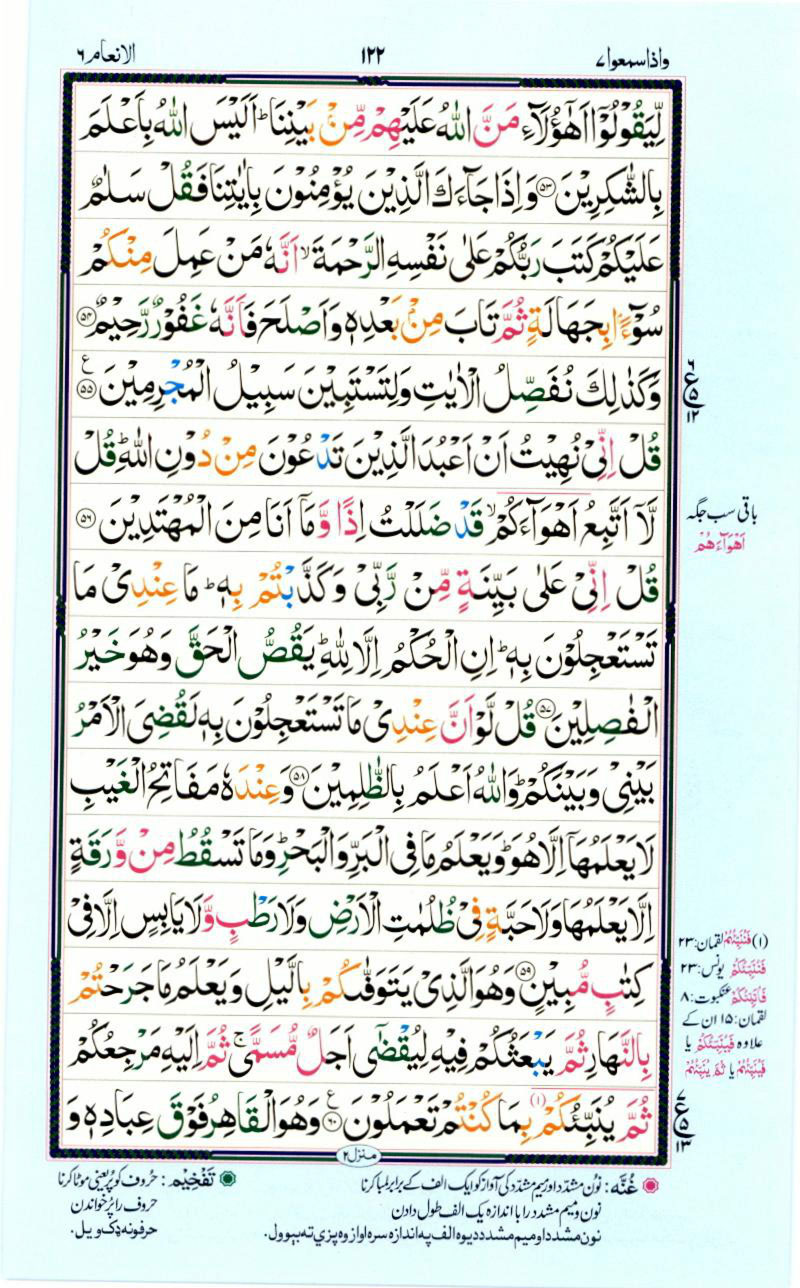 واذاسمعوا ٧
١٢٢
الانعام ٦
لِّیَقُوْلُوْۤا اَهٰۤؤُلَآءِ مَنَّ اللّٰهُ عَلَیْهِمْ مِّنْۢ بَیْنِنَا ؕ اَلَیْسَ اللّٰهُ بِاَعْلَمَ
بِالشّٰكِرِیْنَ ۝۵۳ وَ اِذَا جَآءَكَ الَّذِیْنَ یُؤْمِنُوْنَ بِاٰیٰتِنَا فَقُلْ سَلٰمٌ
عَلَیْكُمْ كَتَبَ رَبُّكُمْ عَلٰی نَفْسِهِ الرَّحْمَةَ ۙ اَنَّهٗ مَنْ عَمِلَ مِنْكُمْ
سُوْٓءًۢا بِجَهَالَةٍ ثُمَّ تَابَ مِنْۢ بَعْدِهٖ وَ اَصْلَحَ فَاَنَّهٗ غَفُوْرٌ رَّحِیْمٌ ۝۵۴
وَ كَذٰلِكَ نُفَصِّلُ الْاٰیٰتِ وَ لِتَسْتَبِیْنَ سَبِیْلُ الْمُجْرِمِیْنَ ۝۵۵ ع
قُلْ اِنِّیْ نُهِیْتُ اَنْ اَعْبُدَ الَّذِیْنَ تَدْعُوْنَ مِنْ دُوْنِ اللّٰهِ ؕ قُلْ
لَّاۤ اَتَّبِعُ اَهْوَآءَكُمْ ۙ قَدْ ضَلَلْتُ اِذًا وَّ مَاۤ اَنَا مِنَ الْمُهْتَدِیْنَ ۝۵۶
قُلْ اِنِّیْ عَلٰی بَیِّنَةٍ مِّنْ رَّبِّیْ وَ كَذَّبْتُمْ بِهٖ ؕ مَا عِنْدِیْ مَا
تَسْتَعْجِلُوْنَ بِهٖ ؕ اِنِ الْحُكْمُ اِلَّا لِلّٰهِ ؕ یَقُصُّ الْحَقَّ وَ هُوَ خَیْرُ
الْفٰصِلِیْنَ ۝۵۷ قُلْ لَّوْ اَنَّ عِنْدِیْ مَا تَسْتَعْجِلُوْنَ بِهٖ لَقُضِیَ الْاَمْرُ
بَیْنِیْ وَ بَیْنَكُمْ ؕ وَ اللّٰهُ اَعْلَمُ بِالظّٰلِمِیْنَ ۝۵۸ وَ عِنْدَهٗ مَفَاتِحُ الْغَیْبِ
لَا یَعْلَمُهَاۤ اِلَّا هُوَ ؕ وَ یَعْلَمُ مَا فِی الْبَرِّ وَ الْبَحْرِ ؕ وَ مَا تَسْقُطُ مِنْ وَّرَقَةٍ
اِلَّا یَعْلَمُهَا وَ لَا حَبَّةٍ فِیْ ظُلُمٰتِ الْاَرْضِ وَ لَا رَطْبٍ وَّ لَا یَابِسٍ اِلَّا فِیْ
كِتٰبٍ مُّبِیْنٍ ۝۵۹ وَ هُوَ الَّذِیْ یَتَوَفّٰىكُمْ بِالَّیْلِ وَ یَعْلَمُ مَا جَرَحْتُمْ
بِالنَّهَارِ ثُمَّ یَبْعَثُكُمْ فِیْهِ لِیُقْضٰۤی اَجَلٌ مُّسَمًّی ۚ ثُمَّ اِلَیْهِ مَرْجِعُكُمْ
ثُمَّ یُنَبِّئُكُمْ (۱) بِمَا كُنْتُمْ تَعْمَلُوْنَ ۝۶۰ ع وَ هُوَ الْقَاهِرُ فَوْقَ عِبَادِهٖ وَ
منزل ٢
٦
ع ۵
١٢
باقی سب جگہ
اَهْوَآءَهُمْ
(١) فَنُنَبِّئُهُمْ لقمان: ٢٣
فَنُنَبِّئُكُمْ یونس: ٢٣
فَاُنَبِّئُكُمْ عنکبوت: ٨
لقمان: ١۵ ان کے
علاوہ فَیُنَبِّئُكُمْ یا
فَیُنَبِّئُهُمْ یا ثُمَّ یُنَبِّئُهُمْ
٧
ع ۵
١٣
غُنَّه: نون مشدّد اور میم مشدّد کی آواز کو ایک الف کے برابر لمبا کرنا
نون و میم مشدد را با اندازه یک الف طول دادن
نون مشدد او میم مشدد د یوه الف په اندازه سره اواز وه پزې ته بېوول.
تَفْخِیْم: حروف کو پُر یعنی موٹا کرنا
حروف را پُر خواندن
حرفونه ډک ویل.